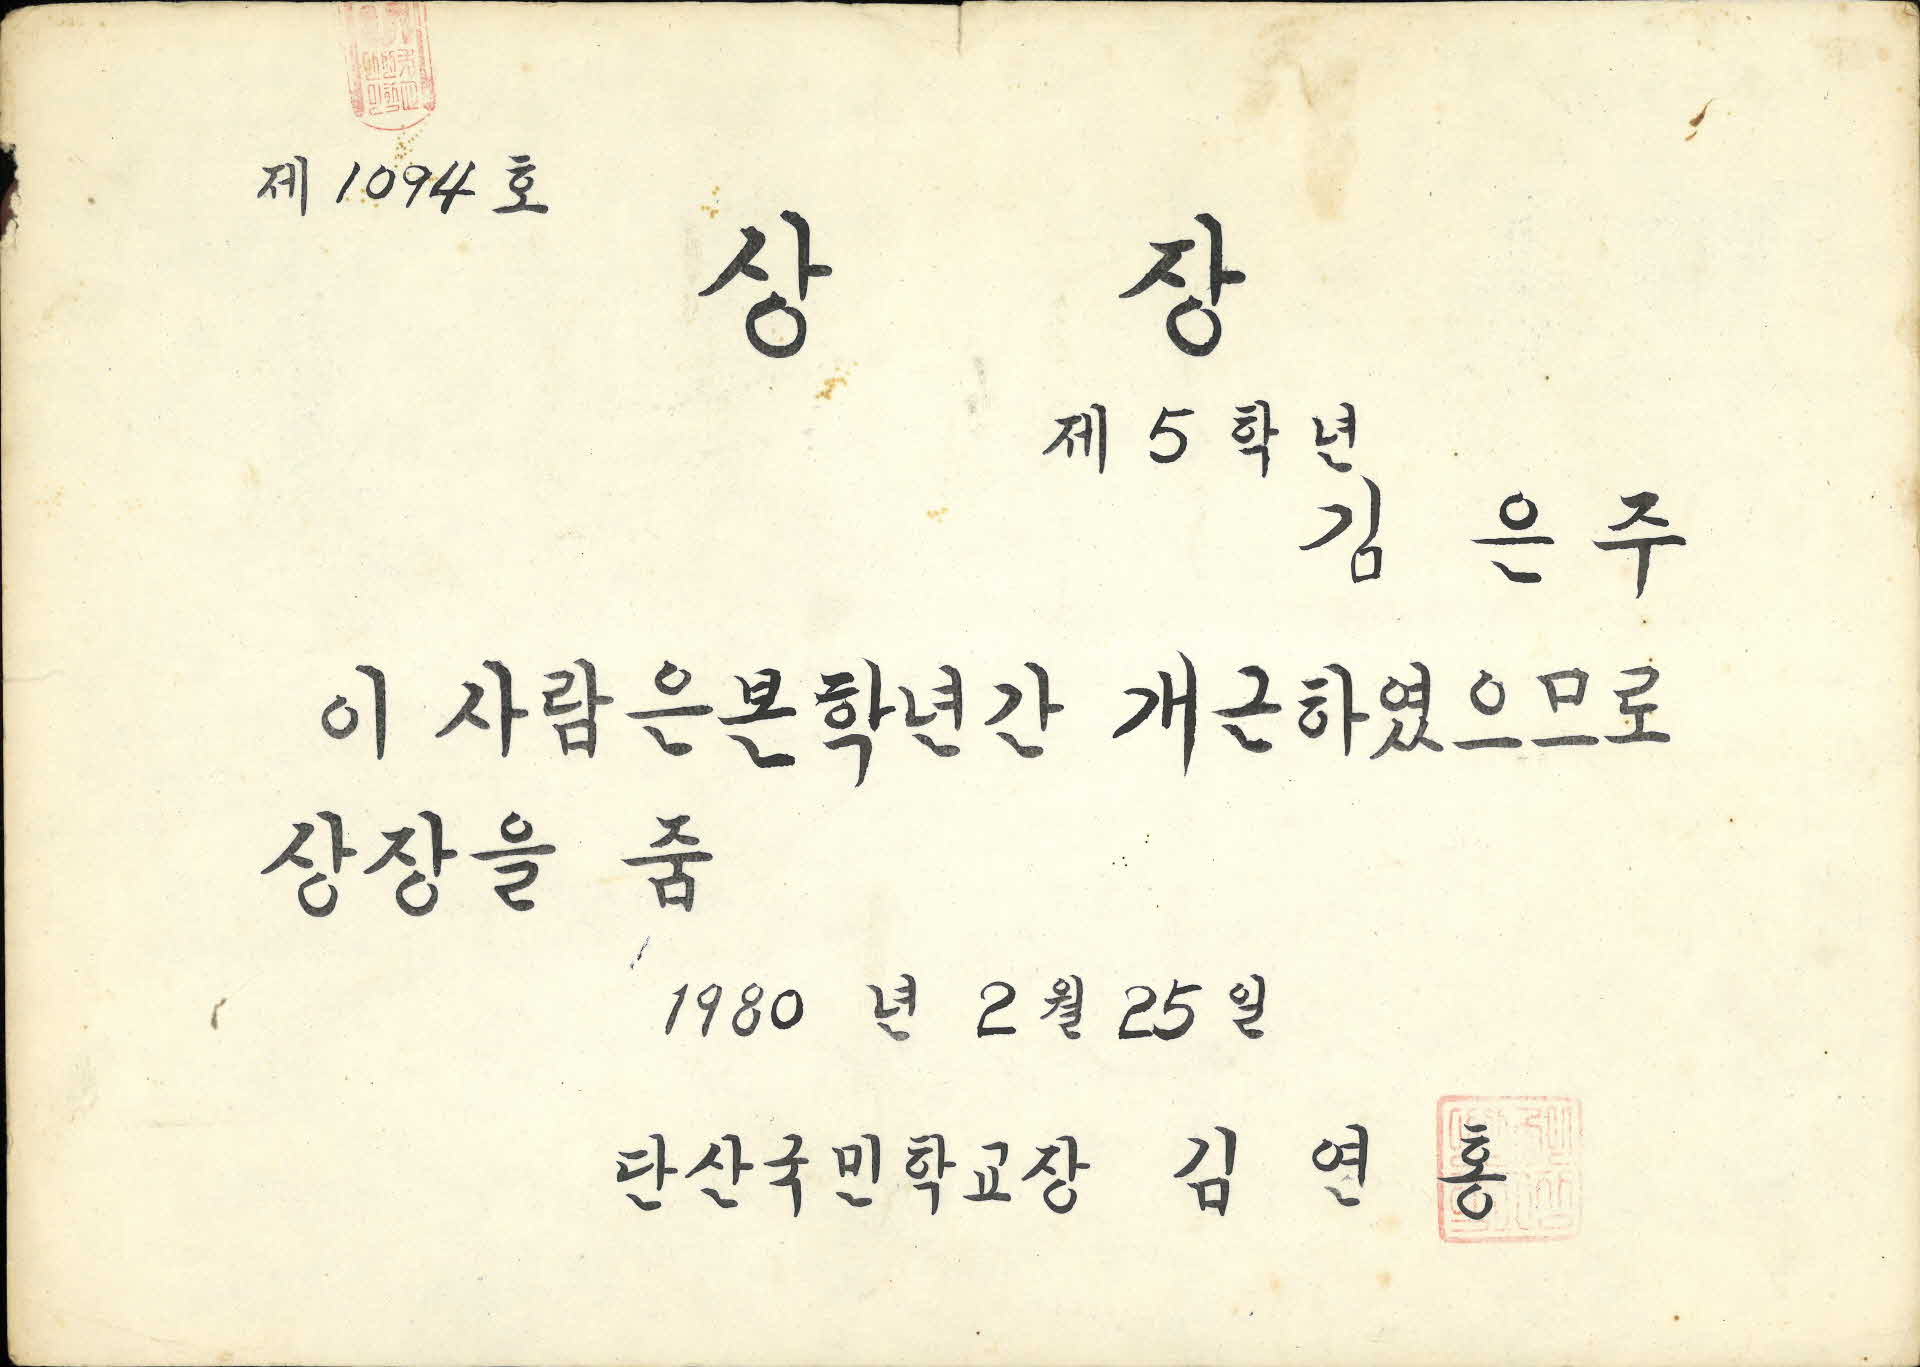 제 1094 호
상 장
제 5 학 년
김 은 주
이 사람은 본학년간 개근하였으므로
상장을 줌
1980 년 2 월 25 일
단산국민학교장 김 연 홍